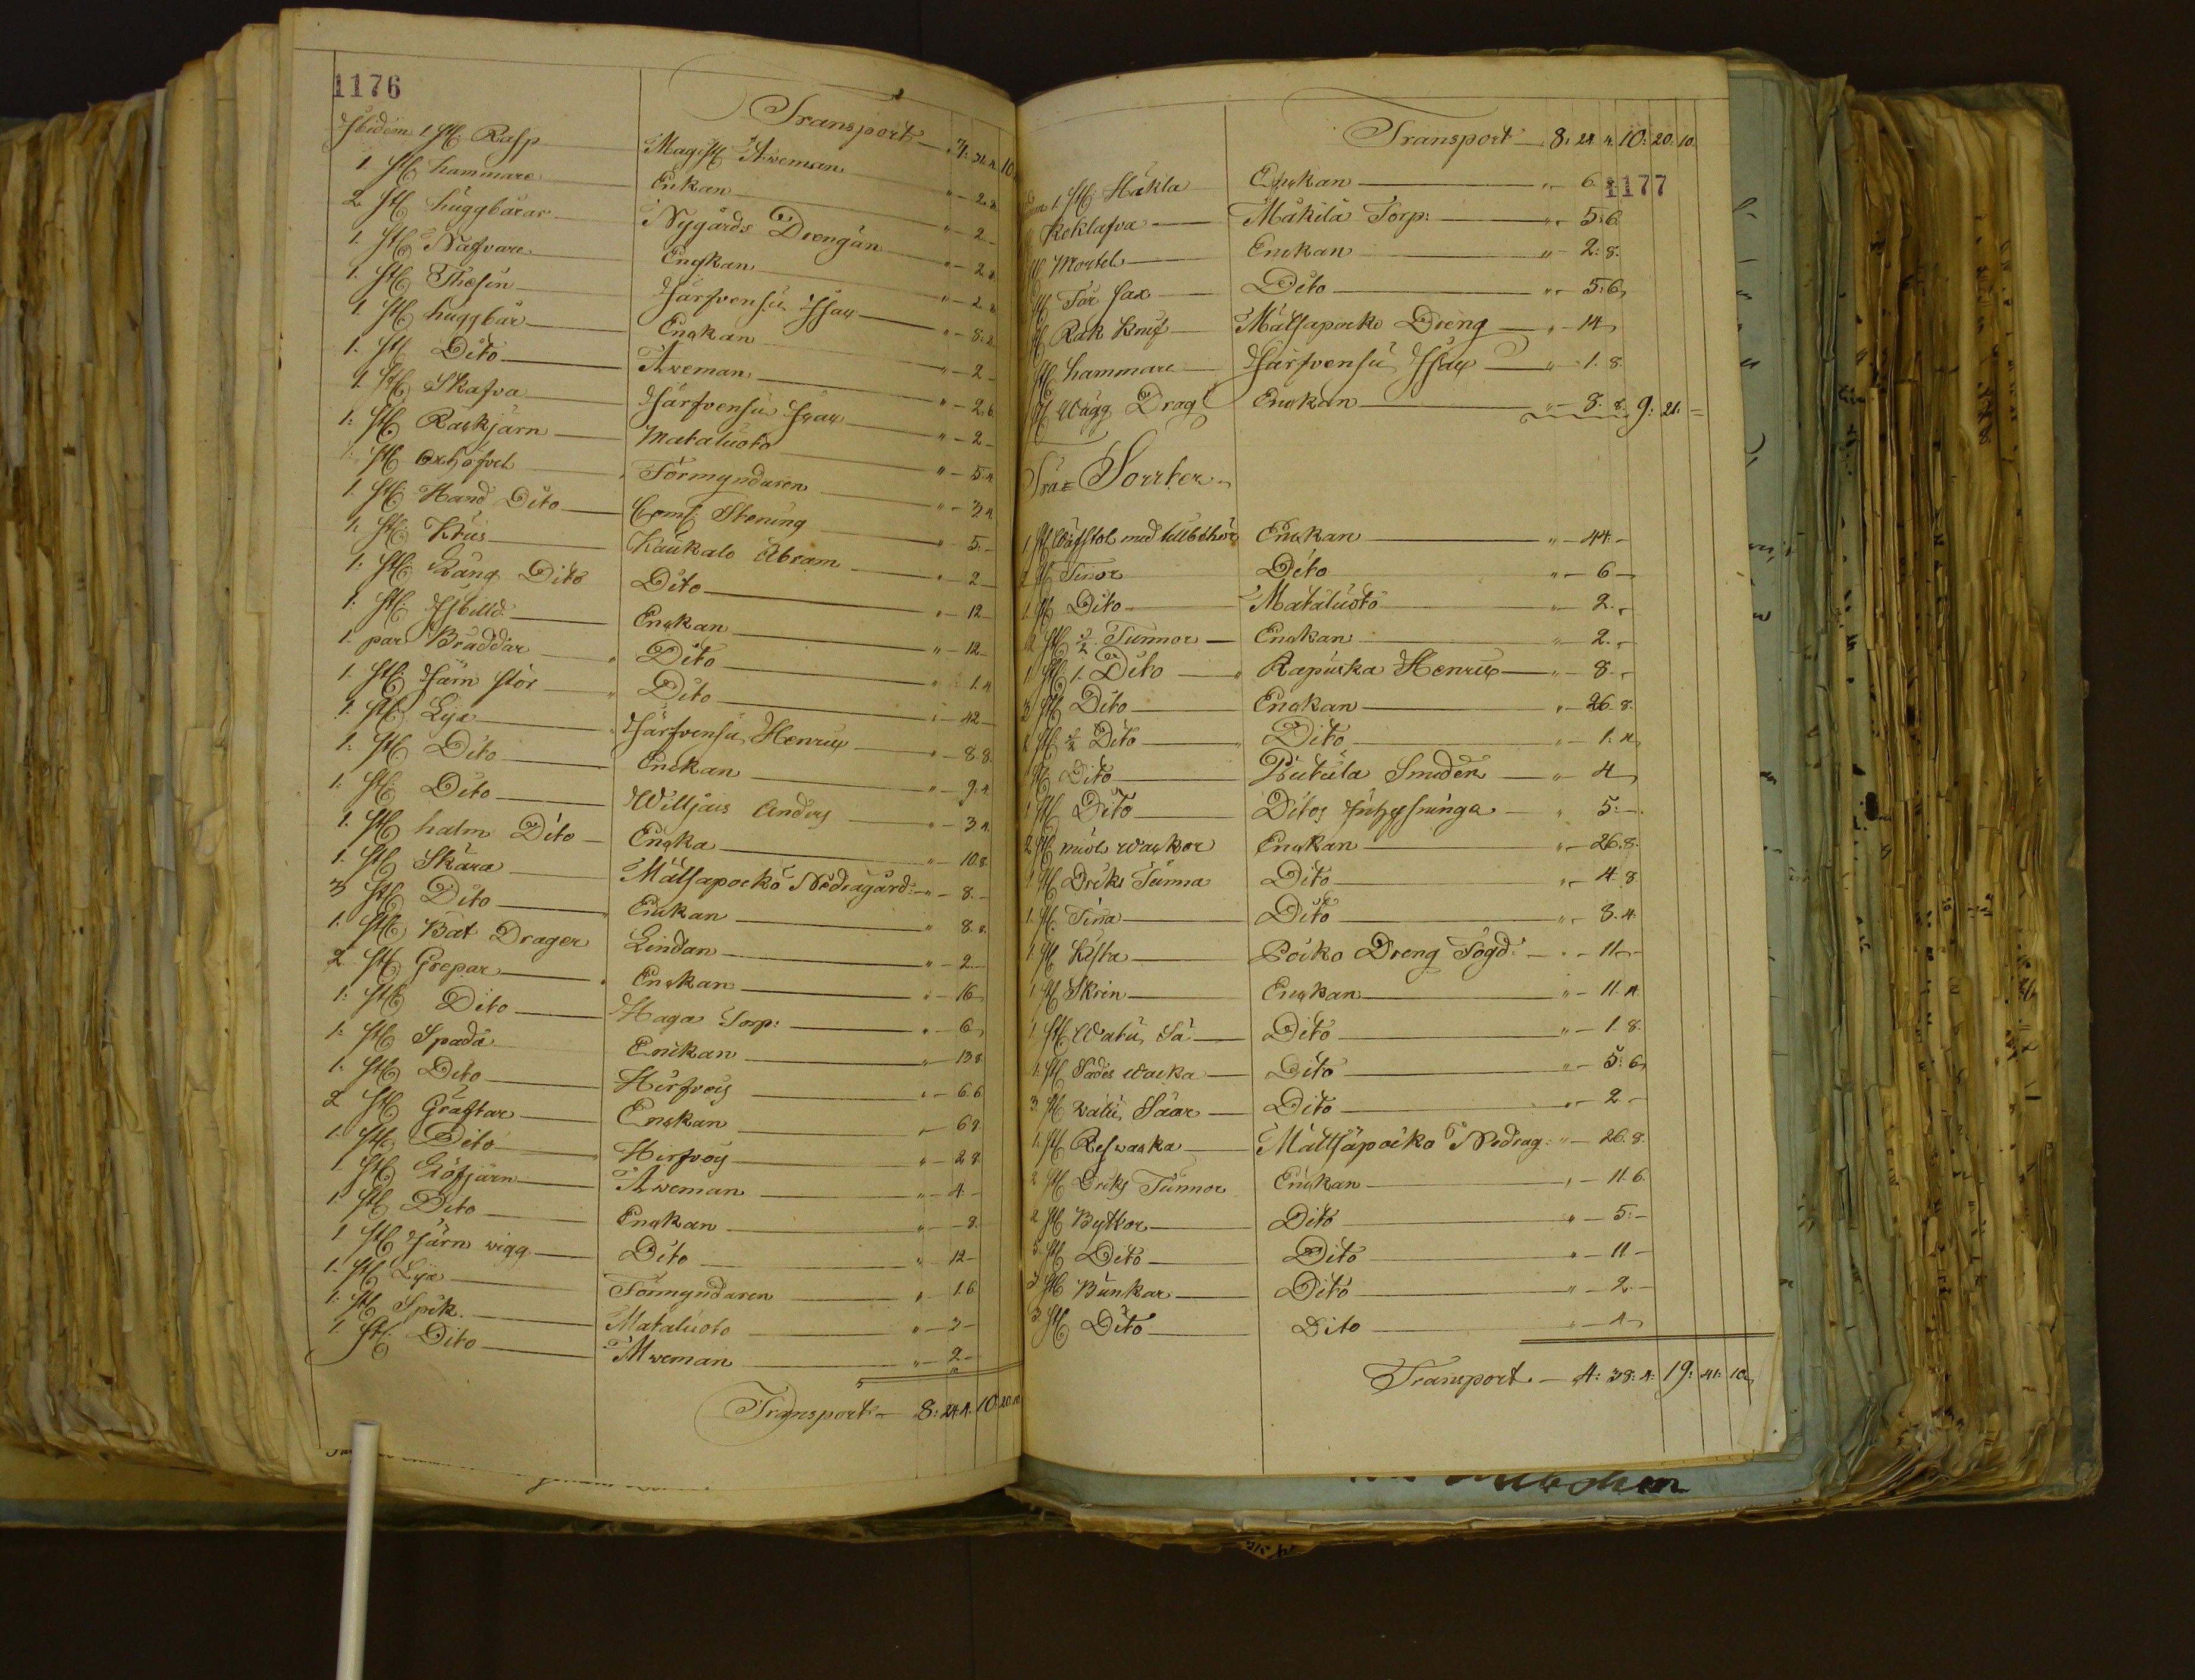 1176
Transport 7: 31. 4. 10
Ibidem 1. st. Rasp Magist Åweman " - 2. 8
1. st. hammare Enkan " - 2 -
2 st. huggbärar Nygårds Drengän " - 2. 8
1. st. Näfvare Enkan " - 2. 8
1. st. Thesin Järfvensu Isax " - 8. 2
1. st. huggbär Enkan " - 2 -
1. st. Dito Åweman " - 2. 6
1. st. Skafva Järfvensu Isax " - 2 -
1. st. Raskjärn Mataluoto " - 5. 4
1. st. oxhöfvel Förmyndaren " - 3 4
1. st. Hand Dito Com: Stening " - 5. -
1. st. Krus Kaukalo Abram " - 2 -
1. st. Lång Dito Dito " - 12
1. st. Isbilld Enkan " - 12 -
1. par Bräddar Dito " - 1. 4
1. st. Järn stör Dito " - 42 -
1. st. Lija Järfvensu Henrix " - 8. 8.
1. st. Dito Enkan " - 9. 4
1. st. Dito Willjais Anders " - 3 4
1. st. halm Dito Enka " - 10. 8.
1. st. Skära Mältsapoeko Nedragård: " - 8. -
3 st. Dito Enkan " 8. 8.
1. st. Båt Drager Lindan " - 2 -
2 st. Grepar Enkan " - 16
1. st. Dito Haga Torp: " - 6
1. st. Spada Enkan " - 13 8.
1. st. Dito Hirfvoij " - 6. 6
2 st. Gräftar Enkan " - 6 8.
1. st. Dito Hirfvoij " - 2 8.
1. st. Löfjärn Åweman " - 4. -
1. st. Dito Enkan " - 8.
1 st. Järn wigg Dito " - 12 -
1. st. Lija Förmyndaren " - 1. 6
1. st. Spik Mataluoto " - 3 -
1. st. Dito Åweman " - 2 -
Transport - 8: 24. 4. 10. 20. 10
Transport - 8: 24. 4. 10: 20: 10.
1177
1. st. Häkla Enkan " - 6
Koklafva Mäkilä Torp: " - 5: 6
st. Mortel Enkan " - 2: 8.
st. Får sax Dito " - 5: 6
st. Rak knif Mältsapoeko Dreng " - 14
st. hammare Järfvensu Isax " - 1. 8.
st. Wägg Drag Enkan " - 8. 8. 9: 21: =
Trä= Sorter.
1 st. Wäfstol med tillbehör Enkan " - 44. -
2 st. Tinor Dito " - 6 -
1. st. Dito Mataluoto " - 2. -
2 st. ½ Tunnor Enkan " - 2. -
1 st. 1. Dito Rapuska Henrix " - 8. -
3 st. Dito Enkan " - 26. 8.
2 st. ½ Dito Dito " - 1. 4
1 st. Dito Piutula Smeden " - 4
1 st. Dito Ditos " 5: -
2 st. miöl wackor Enkan " - 26. 8.
1 st. Dricks Tunna Dito " - 4. 8
1. st. Tina Dito " - 8. 4.
1. st. Kista Poiko Dreng Fogd: " - 11 -
1. st. Skrin Enkan " - 11. 4.
1. st. Watu Så Dito " - 1. 8.
1. st. Sädes wacka Dito " - 5: 6
3. st. watu Såar Dito " - 2 -
1. st. Reswaska Mältsäpoeko Nedrag: " - 26. 8.
2 st. Dricks Tunnor Enkan " - 11. 6.
2 st. Byttor Dito " - 5: -
5. st. Dito Dito " - 11 -
2 st. Bunkar Dito " - 2. -
3. st. Dito Dito " - 4
Transport - 4: 38: 4: 19: 41: 10